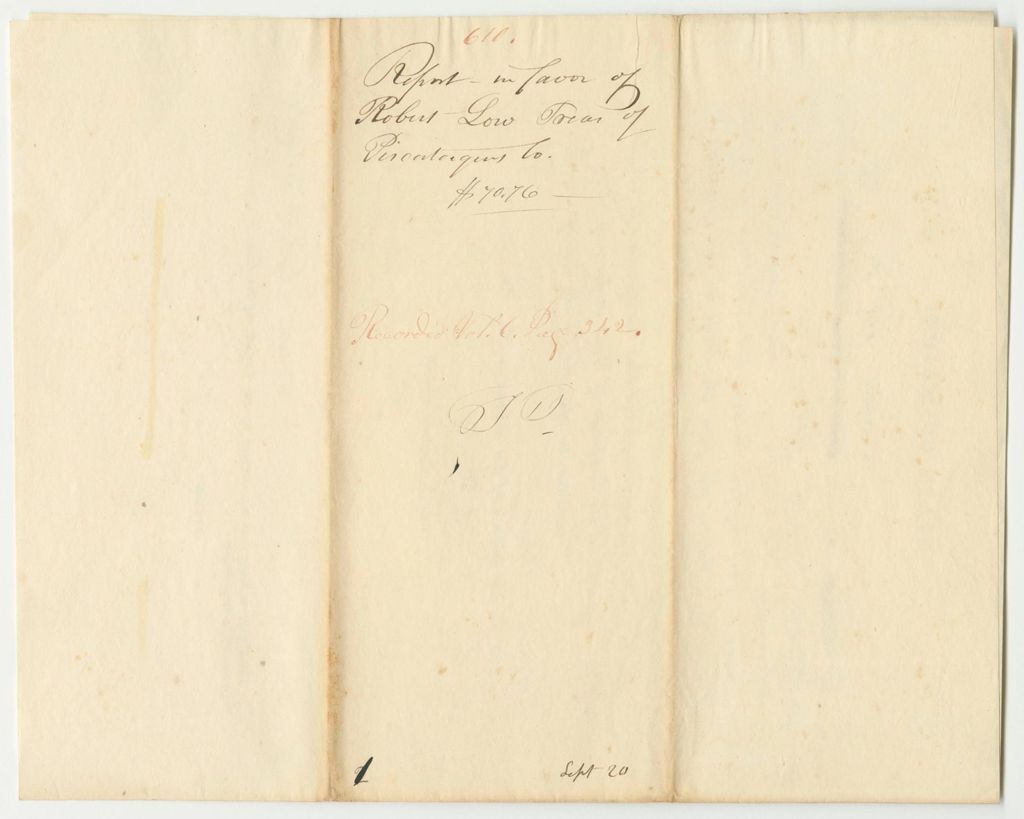 610.
Report - in favor of
Robert Low Treas of
Piscataquis Co.
$70.76
Recorded Vol. 6. Page 342.
Sept 20